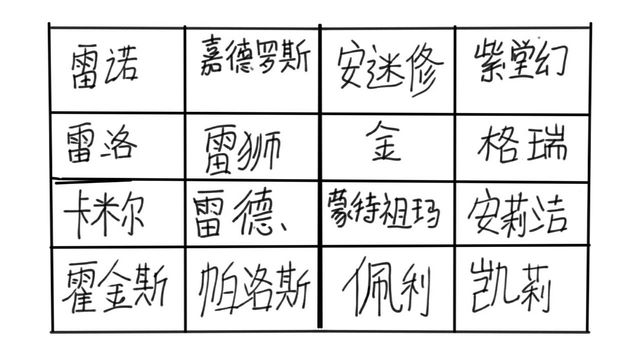 雷诺 嘉德罗斯 安迷修 紫堂幻
雷洛 雷狮 金 格瑞
卡米尔 雷德、 蒙特祖玛 安莉洁
霍金斯 帕洛斯 佩利 凯莉